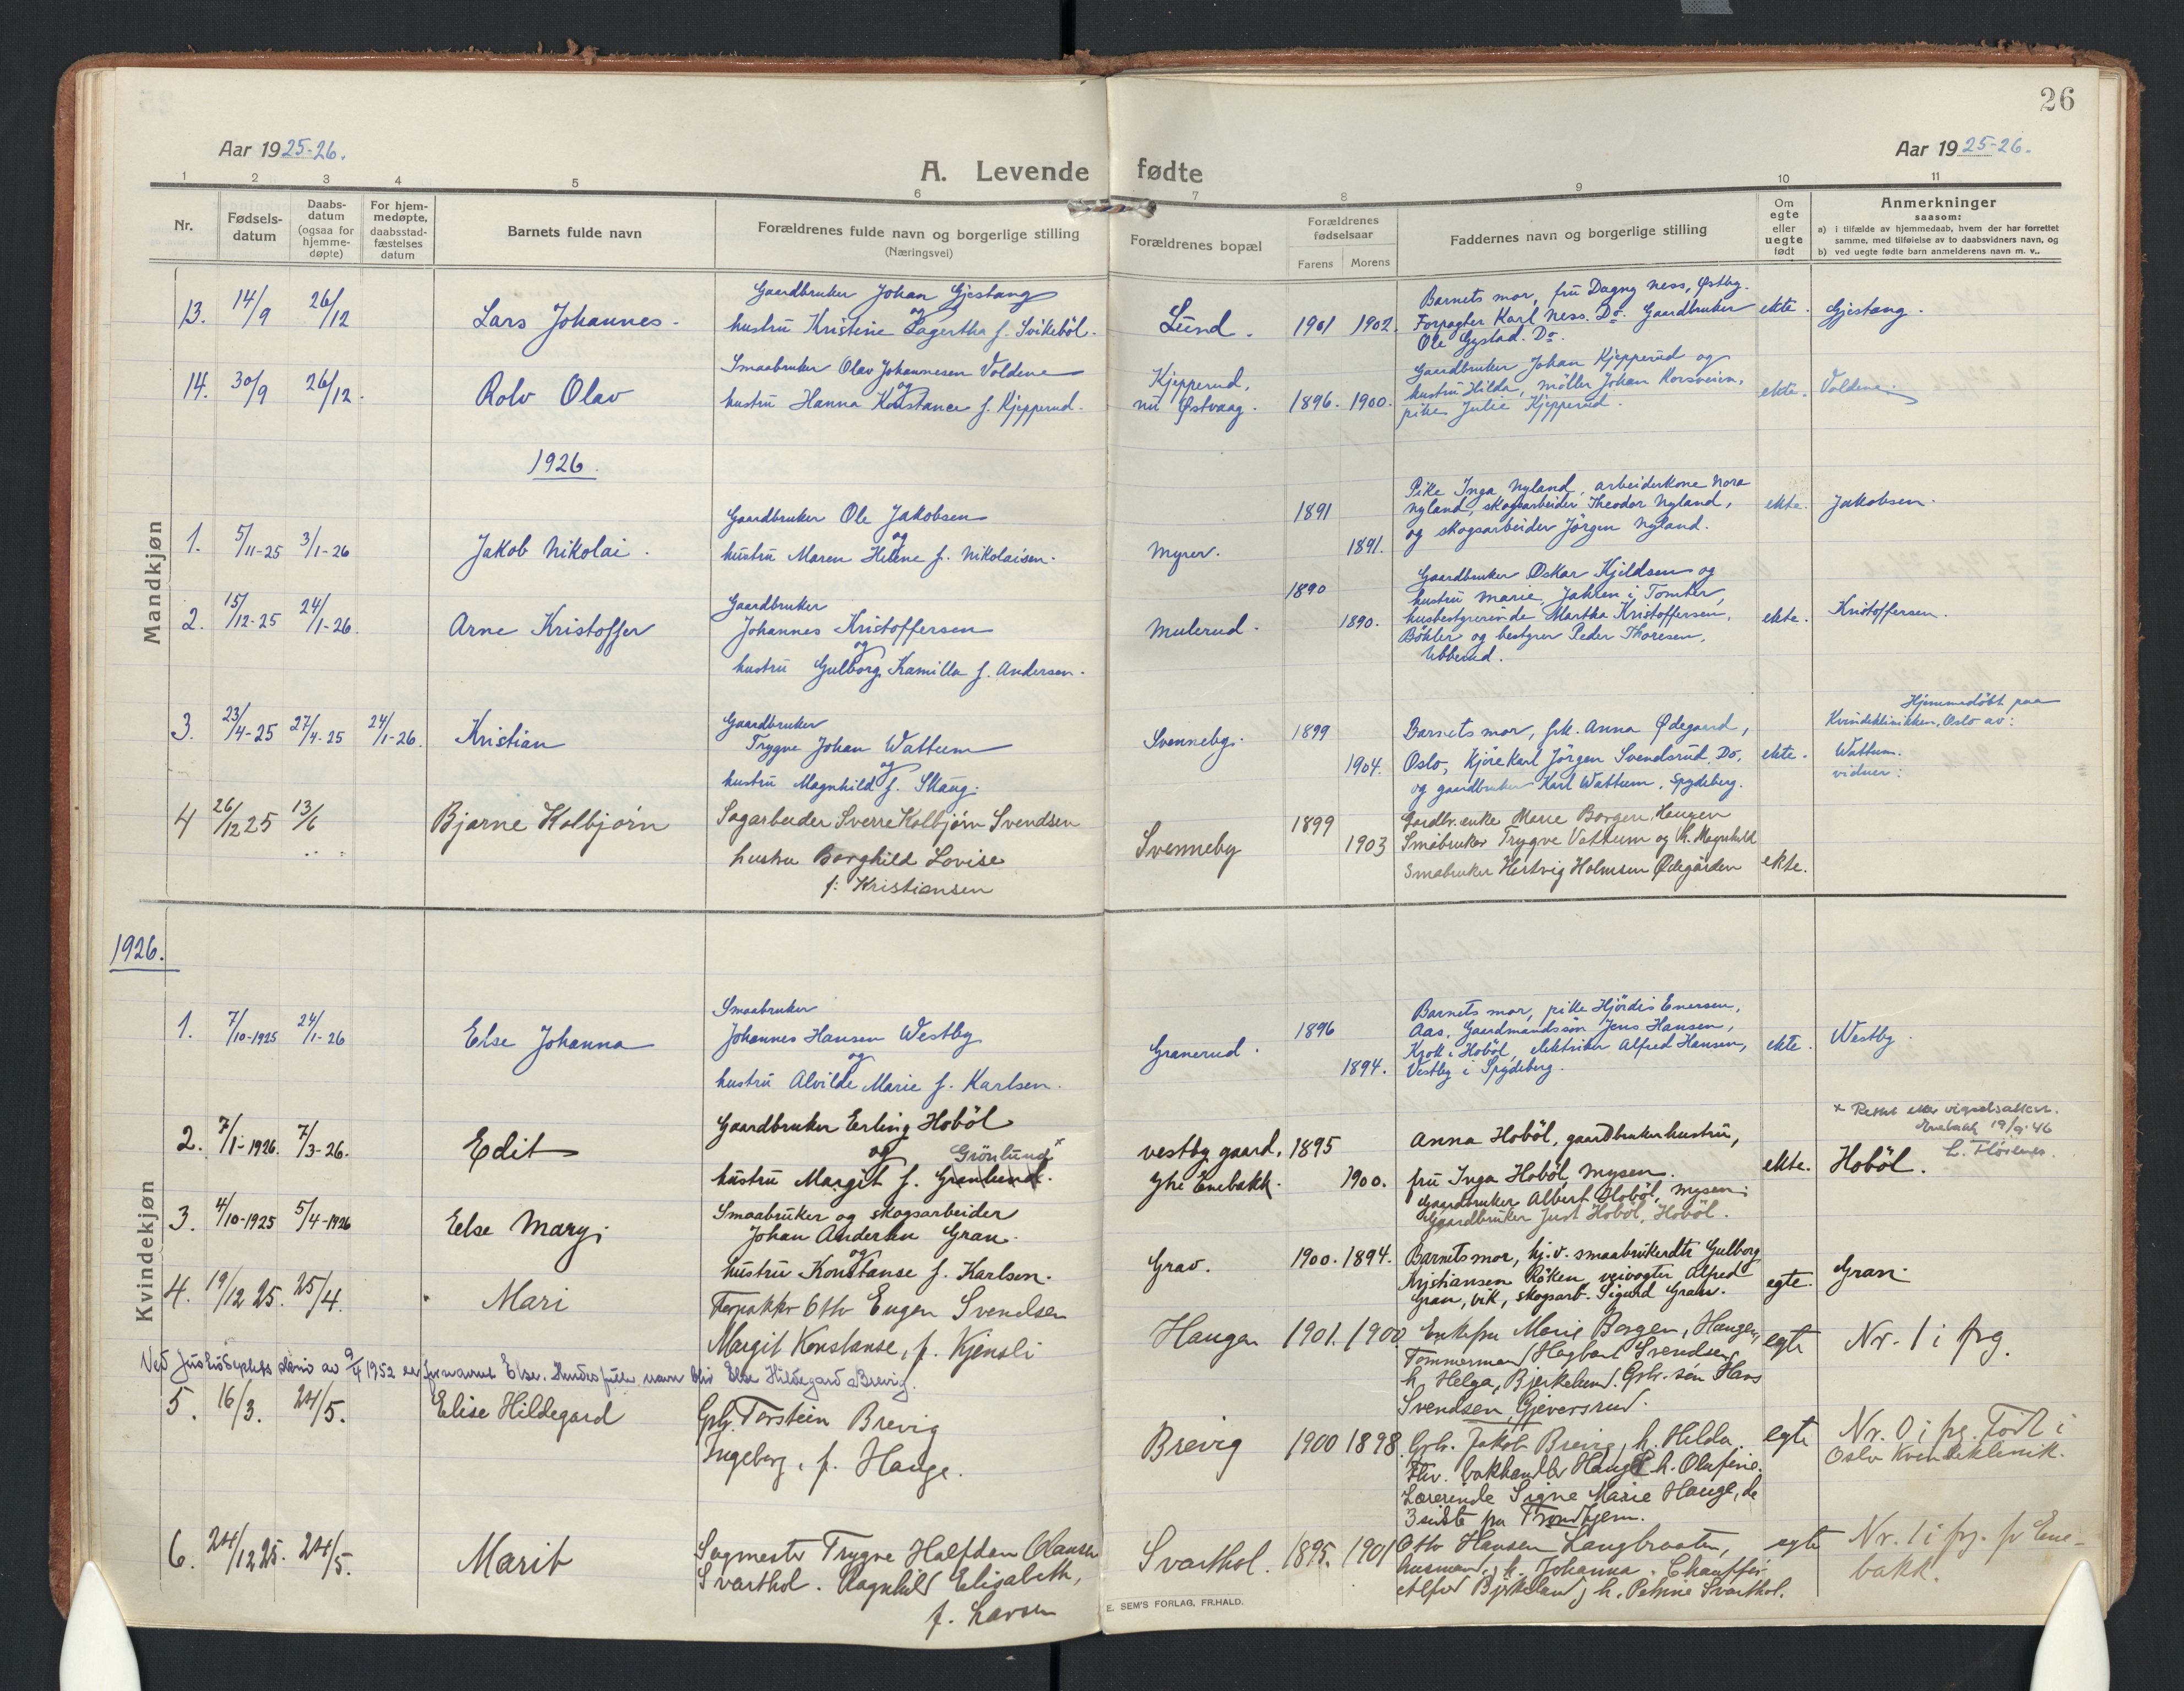 26
Aar 1925-26.
Aar 1925-26.
A. Levende fødte
1 2 3 4 5 6 7 8 9 10 11
Nr.
Fødsels-
datum
Daabs-
datum
(ogsaa for
hjemme-
døpte)
For hjem-
medøpte,
daabsstad-
fæstelses
datum
Barnets fulde navn
Forældrenes fulde navn og borgerlige stilling
(Næringsvei)
Forældrenes bopæl
Forældrenes
fødselsaar
Farens Morens
Faddernes navn og borgerlige stilling
Om
egte
eller
uegte
født
Anmerkninger
saasom:
a) i tilfælde av hjemmedaab, hvem der har forrettet
samme, med tilføielse av to daabsvidners navn, og
b) ved uegte fødte barn anmelderens navn m. v..
Mandkjøn
13. 14/9 26/12 Lars Johannes.
Gaardbruker Johan Gjestang
og
hustru Kristine Lagertha f. Svikebøl.
Lund. 1901 1902.
Barnets mor, fru Dagny Ness, Østby.
Forpagter Karl Ness. Do. Gaardbruker
Ole Gystad. Do.
ekte. Gjestang.
14. 30/9 26/12. Rolv Olav
Smaabruker Olav Johannesen Voldene
og
hustru Hanna Konstance f. Kjepperud.
Kjepperud,
nu Østvaag. 1896. 1900.
Gaardbruker Johan Kjepperud og
hustru Hilda, møller Johan Korsveien,
pike Julie Kjepperud.
ekte. Voldene.
1926.
1. 5/11-25 3/1-26 Jakob Nikolai.
Gaardbruker Ole Jakobsen
og
hustru Maren Helene f. Nikolaisen.
Myrer. 1891 1891.
Pike Inga Nyland, arbeiderkone Nora
Nyland, skogsarbeider Theodor Nyland,
og skogsarbeider Jörgen Nyland.
ekte. Jakobsen.
2. 15/12-25 24/1-26. Arne Kristoffer
Gaardbruker
Johannes Kristoffersen
og
hustru Gulborg Kamilla f. Andersen.
Mulerud. 1890 1890.
Gaardbruker Oskar Kjeldsen og
hustru Marie, Jahren i Tomter,
husbestyrerinde Martha Kristoffersen,
Böhler og bestyrer Peder Thoresen,
Ubberud.
ekte. Kristoffersen.
3. 23/4-25 27/4-25 24/1-26. Kristian
Gaardbruker
Trygve Johan Wattum
og
hustru Magnhild f. Skaug.
Svenneby. 1899 1904.
Barnets mor, frk. Anna Ødegaard,
Oslo, Kjørekarl Jörgen Svendsrud, Do,
og gaardbruker Karl Wattum, Spydeberg.
ekte.
Hjemmedöbt paa
Kvindeklinikken, Oslo av:
Wattum.
vidner:
4 26/12 25 13/6 Bjarne Kolbjørn
Sagarbeider Sverre Kolbjørn Svendsen
hustru Borghild Lovise
f. Kristiansen
Svenneby 1899 1903
Gardbr. enke Marie Borgen, Haugen
Småbruker Trygve Vattum og h. Magnhild
Småbruker Hertvig Holmsen Ødegården
ekte.
1926.
Kvindekjøn
1. 7/10-1925 24/1-26 Else Johanna
Smaabruker
Johannes Hansen Westby
og
hustru Alvilde Marie f. Karlsen.
Granerud. 1896 1894.
Barnets mor, pike Hjördis Enersen,
Aas, Gaardmandssøn Jens Hansen,
Krok i Hobøl, elektriker Alfred Hansen,
Vestby i Spydeberg.
ekte. Westby.
2. 7/1-1926. 7/3-26. Edit
Gaardbruker Erling Hoböl
og Grönlund x
hustru Margit f. Granlund.
Vestby gaard,
Ytre Enebakk. 1895 1900.
Anna Hoböl, gaardbrukerhustru,
fru Inga Hoböl, Mysen.
Gaardbruker Albert Hoböl, Mysen;
Gaardbruker Just Hoböl, Hoböl.
ekte. Hoböl.
x Rettet etter vigselsattest.
Enebakk 19/9-46
L. Flörenes.
3. 4/10-1925 5/4-1926 Else Mary
Smaabruker og skogsarbeider
Johan Andersen Gran.
og
hustru Konstanse f. Karlsen.
Grav. 1900. 1894.
Barnets mor, hj. v. smaabrukerdtr Gulborg
Kristiansen Röken, veivogter Alfred
Gran, Vik, skogsarb. Sigurd Gran.
egte. Gran.
4. 19/12 25. 25/4. Mari
Forpakter Otto Eugen Svendsen
Margit Konstanse, f. Kjensli
Haugen 1901. 1900.
Enkefru Marie Borgen, Haugen,
Tømmermand Hagbart Svendsen,
h. Helga, Bjerkelund. Grbr. søn Hans
Svendsen, Gjeversrud.
egte Nr. 1 i prg.
Ved Justisdeptets skriv av 9/4 1952 er fornavnet Else. Hendes fulle navn blir Else Hildegard Brevig.
5. 16/3. 24/5. Elise Hildegard
Grbr. Torstein Brevig
Ingeborg, f. Hauge.
Brevig 1900 1898.
Grbr. Jakob Brevig, h. Hilda.
Fhv. bokhandler Hauge h. Olufine.
Lærerinde Signe Marie Hauge, de
3 sidste fra Trondhjem.
egte Nr. 0 i prg. Född i
Oslo Kvindeklinik.
6. 24/12 25. 24/5. Marit
Sagmester Trygve Halfdan Olausen
Svarthol. Ragnhild Elisabeth,
f. Larsen
Svarthol. 1895. 1901
Otto Hansen Langbraaten,
husmand, h. Johanna. Chauffør
Alfred Bjerkeland, h. Petrine Svarthol.
egte Nr. 1 i prg. fr Ene-
bakk.
E. SEM'S FORLAG, FR.HALD.